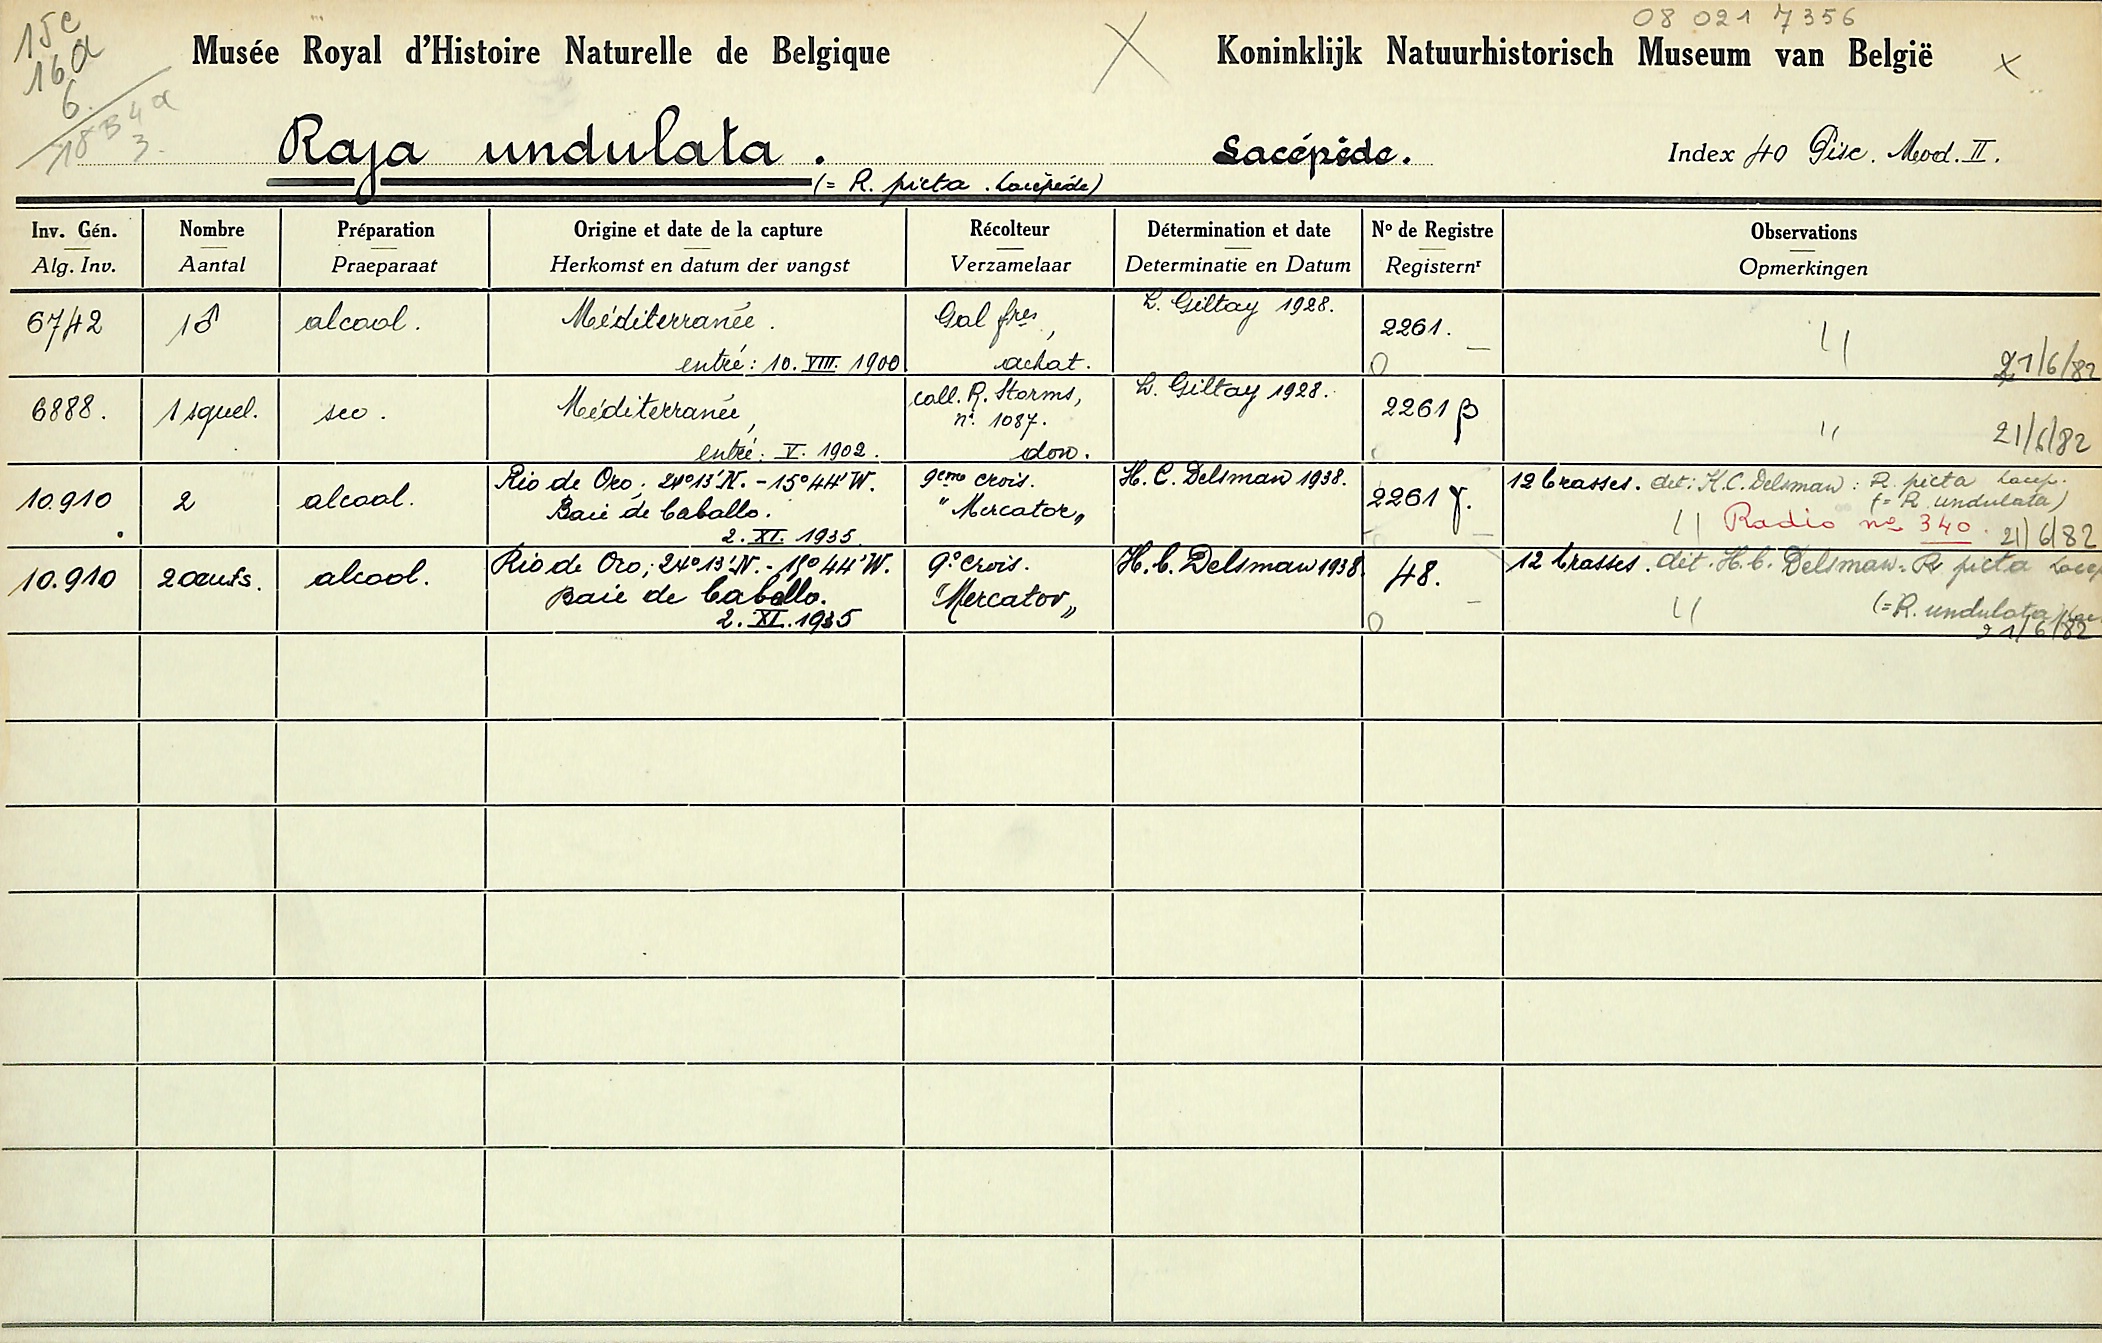 15c
16a
6.
18B 4a
3.
08 021 7356
Musée Royal d'Histoire Naturelle de Belgique
Koninklijk Natuurhistorisch Museum van België
Raja undulata.
Lacépède.
Index 40 Pisc. Mod. II.
(= R. picta. Lacépède)
Inv. Gén. Nombre Préparation Origine et date de la capture Récolteur Détermination et date No de Registre Observations
Alg. Inv. Aantal Praeparaat Herkomst en datum der vangst Verzamelaar Determinatie en Datum Registernr Opmerkingen
6742 1♂ alcool. Méditerranée. Gal fres, L. Giltay 1928. 2261. —
entré: 10. VIII. 1900 achat. 21/6/82
6888. 1 squel. sec. Méditerranée, coll. R. Storms, L. Giltay 1928. 2261 β
n° 1087.
entré: V. 1902. don. 21/6/82
10.910 2 alcool. Rio de Oro; 24°13'N. - 15°44'W. 9eme crois. H. C. Delsman 1938. 2261 γ. 12 brasses. dét: H.C. Delsman: R. picta Lacep.
Baie de Caballo. "Mercator" (= R. undulata)
2. XI. 1935. Radio no 340. 21/6/82
10.910 2 oeufs. alcool. Rio de Oro; 24°13'N. - 15°44'W. 9e crois. H. C. Delsman 1938. 48. — 12 brasses. dét. H. C. Delsman: R. picta Lacep
Baie de Caballo. "Mercator" (= R. undulata Lac.
2. XI. 1935 21/6/82